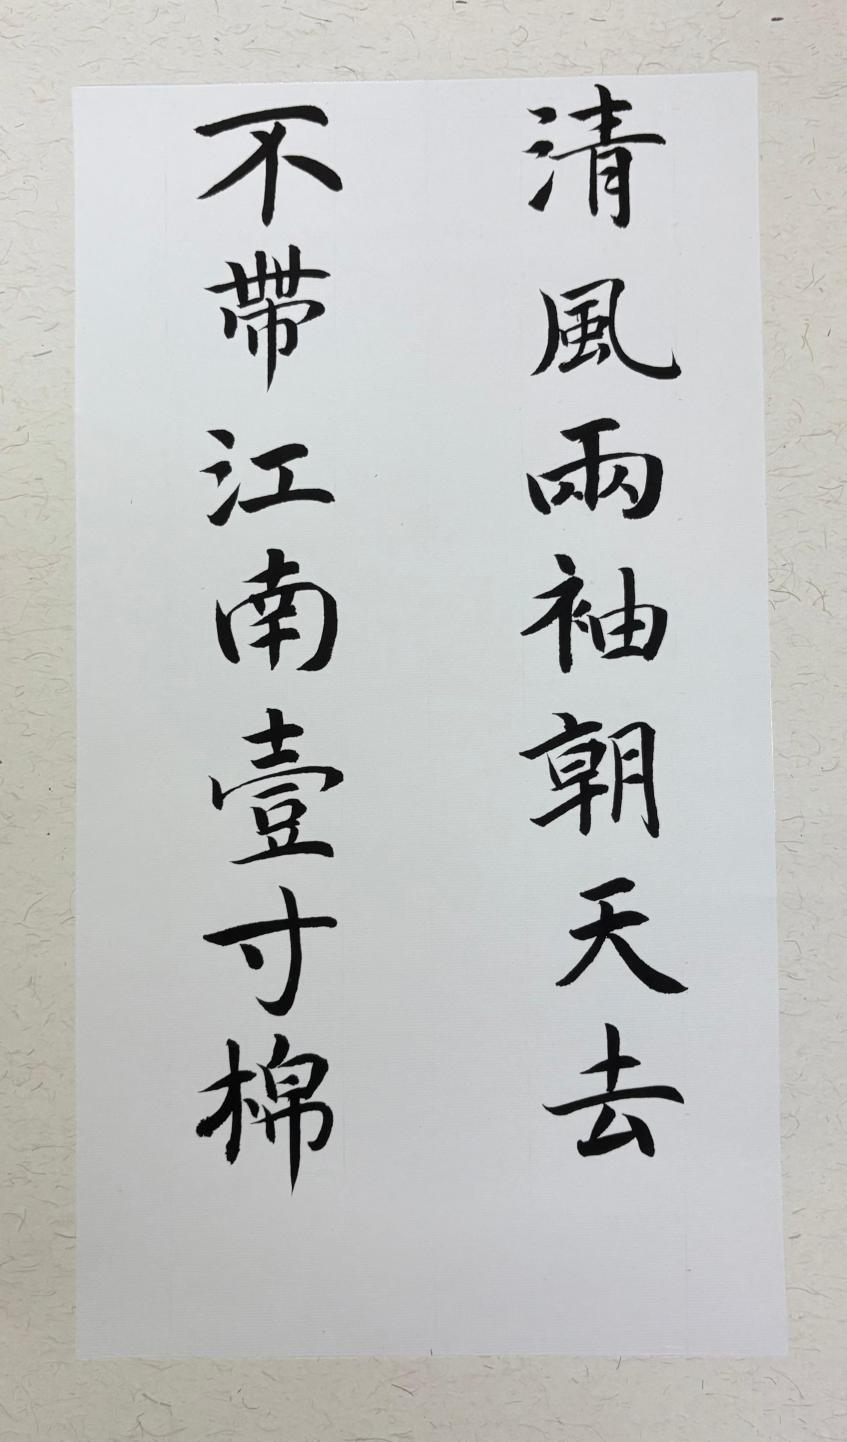 清風兩袖朝天去
不帶江南壹寸棉